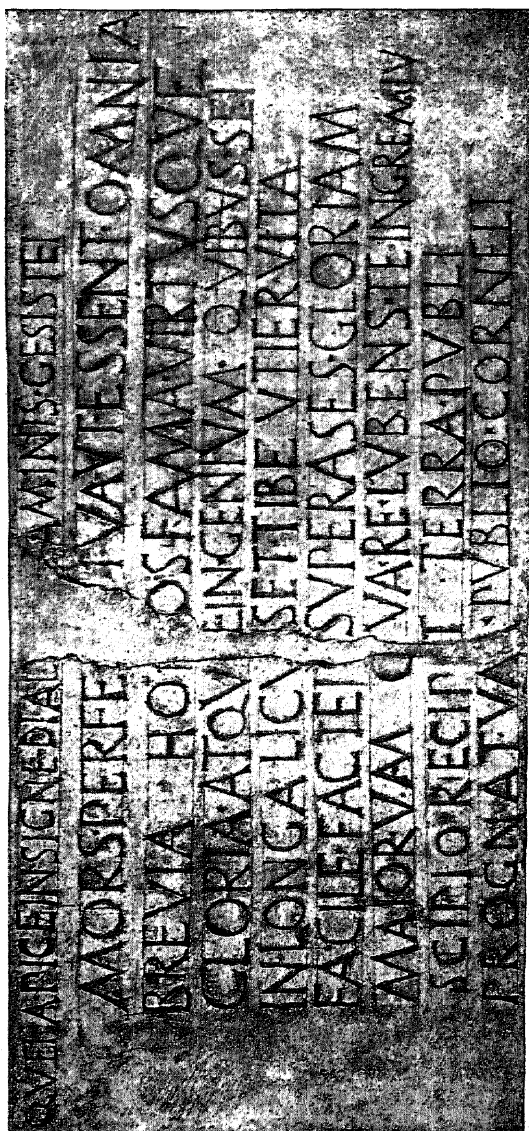 QVEI APICE INSIGNE DIAL AMINIS · GESISTEI
MORS PERFE TVA VT ESSENT OMNIA
BREVIA HONOS FAMA VIRTVSQVE
GLORIA ATQVE INGENIVM · QVIBVS SEI
IN LONGA LICVISET TIBE VTIER VITA
FACILE FACTEIS SVPERASES GLORIAM
MAIORVM QVA RE · LVBENS TE IN GREMIV
SCIPIO RECIPIT TERRA PVBLI
PROGNATVM PVBLIO · CORNELI